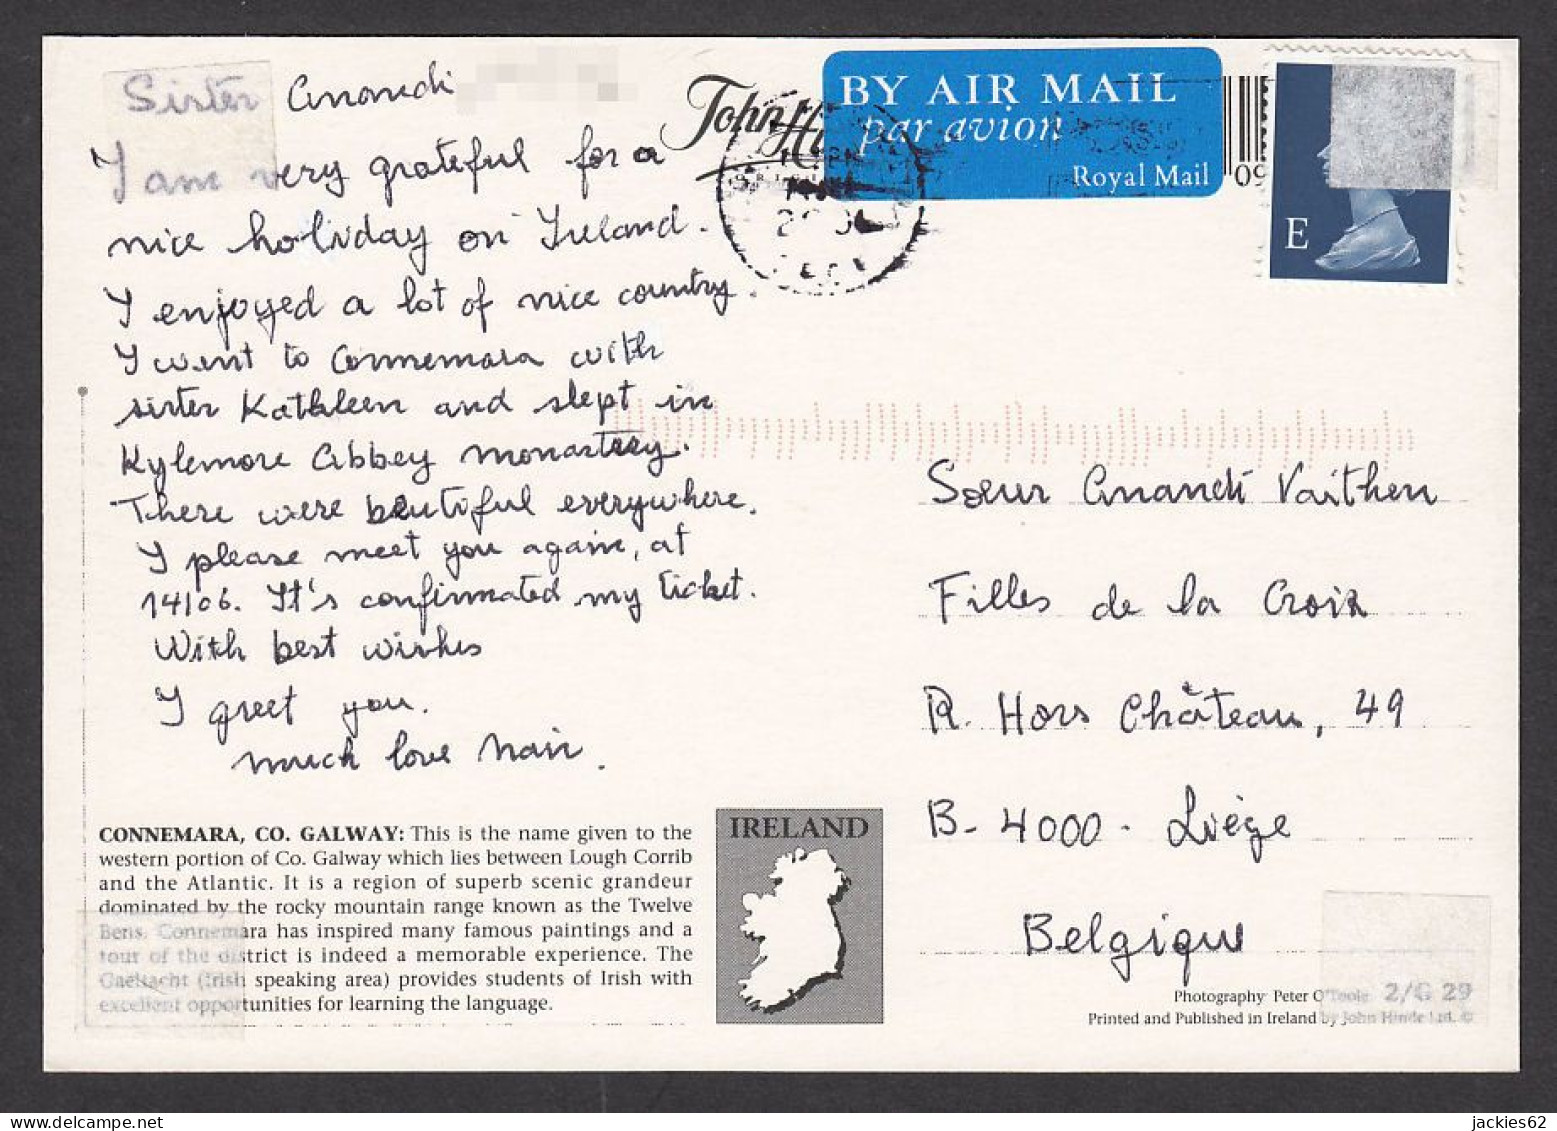 Sister Anandi
I am very grateful for a
nice holiday on Ireland.
I enjoyed a lot of nice country.
I went to Connemara with
sister Kathleen and slept in
Kylemore Abbey monastery.
There were beautiful everywhere.
I please meet you again, at
14/06. It's confirmated my ticket.
With best wishes
I greet you.
much love Nair.
CONNEMARA, CO. GALWAY: This is the name given to the
western portion of Co. Galway which lies between Lough Corrib
and the Atlantic. It is a region of superb scenic grandeur
dominated by the rocky mountain range known as the Twelve
Bens. Connemara has inspired many famous paintings and a
tour of the district is indeed a memorable experience. The
Gaeltacht (Irish speaking area) provides students of Irish with
excellent opportunities for learning the language.
IRELAND
John Hi
BY AIR MAIL
par avion
Royal Mail
09
E
Sœur Anandi Vaithen
Filles de la Croix
R. Hors Château, 49
B-4000 - Liège
Belgique
Photography Peter O'Toole 2/G 29
Printed and Published in Ireland by John Hinde Ltd. ©
jackies62